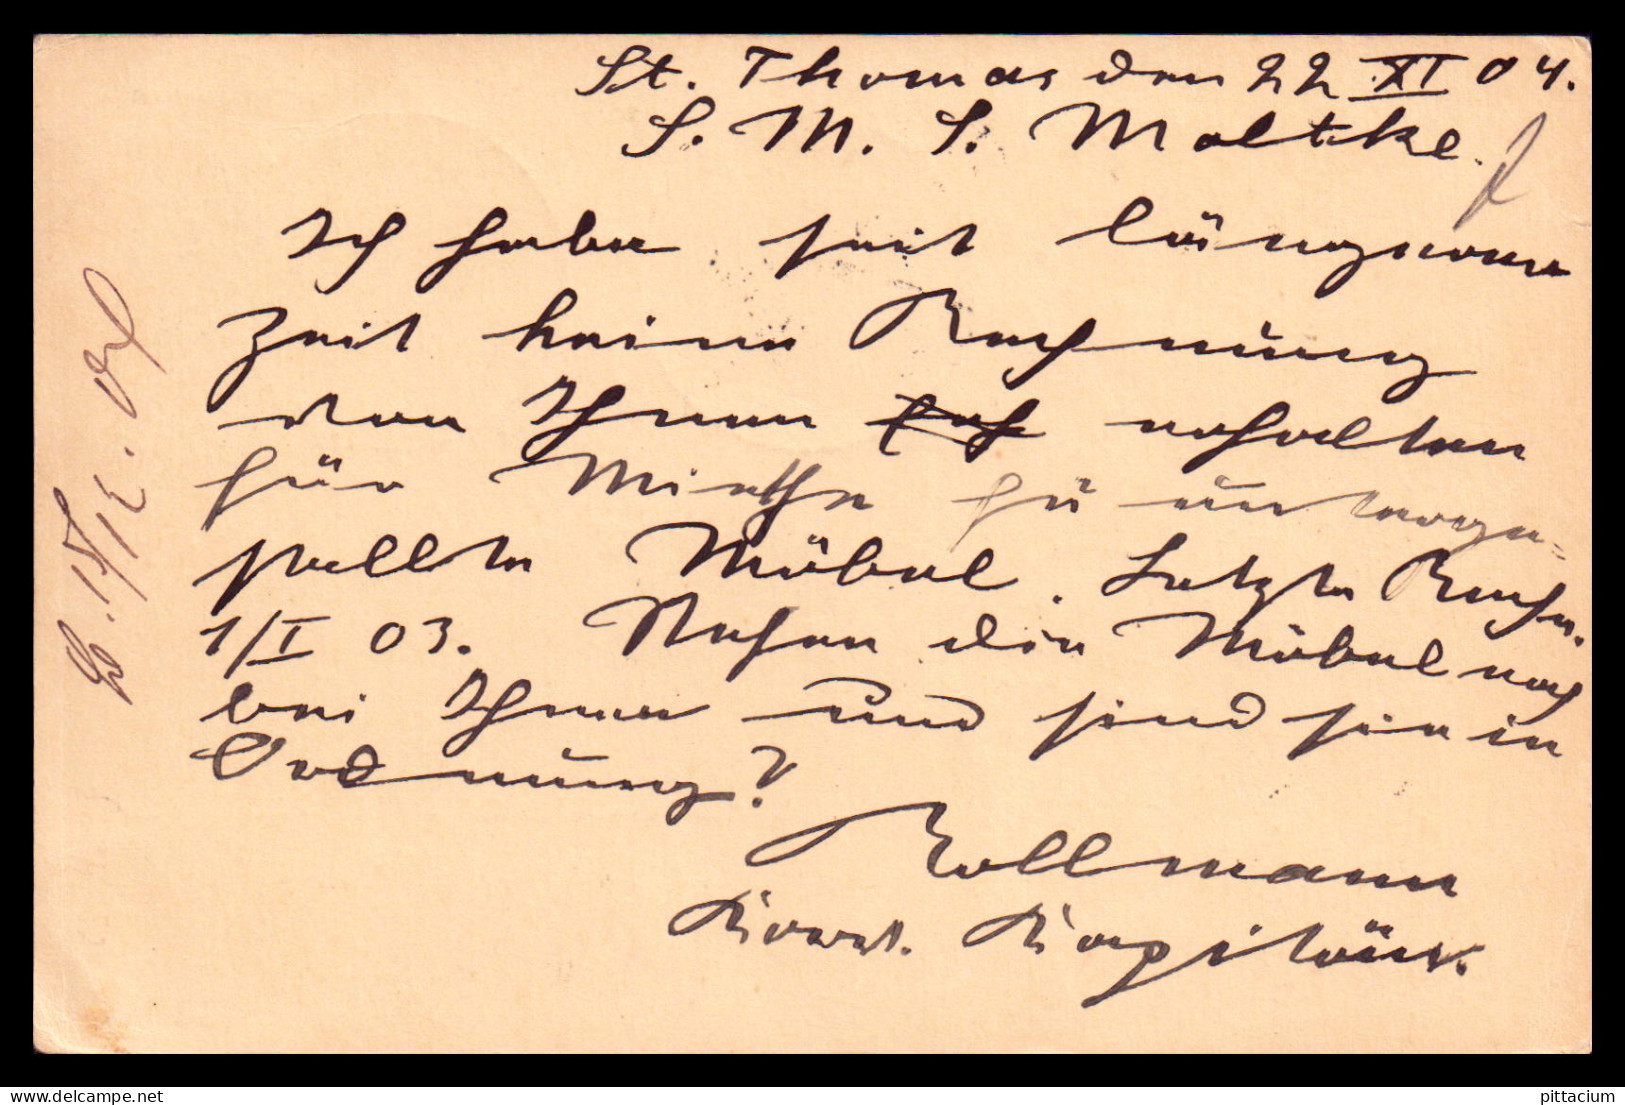 St. Thomas den 22 XI 04.
S. M. S. Moltke.
Ich habe seit längerer
Zeit keine Rechnung
von Ihnen erhalten
für Miethe für unterge=
stellte Möbel. Letzte Rechn.
1/I 03. Stehen die Möbel noch
bei Ihnen und sind sie in
Ordnung?
Rollmann
Korvt. Kapitän.
B. 15/12. 04
delcampe.net
pittacium